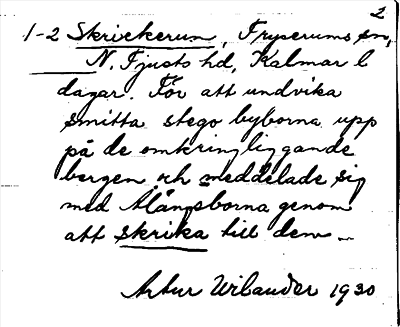 2
1-2 Skrickerum, Fryserums sn,
N. Tjusts hd, Kalmar l
dagar. För att undvika
smitta stego byborna upp
på de omkringliggande
bergen och meddelade sig
med Alångsborna genom
att skrika till dem
Artur Wilander 1930